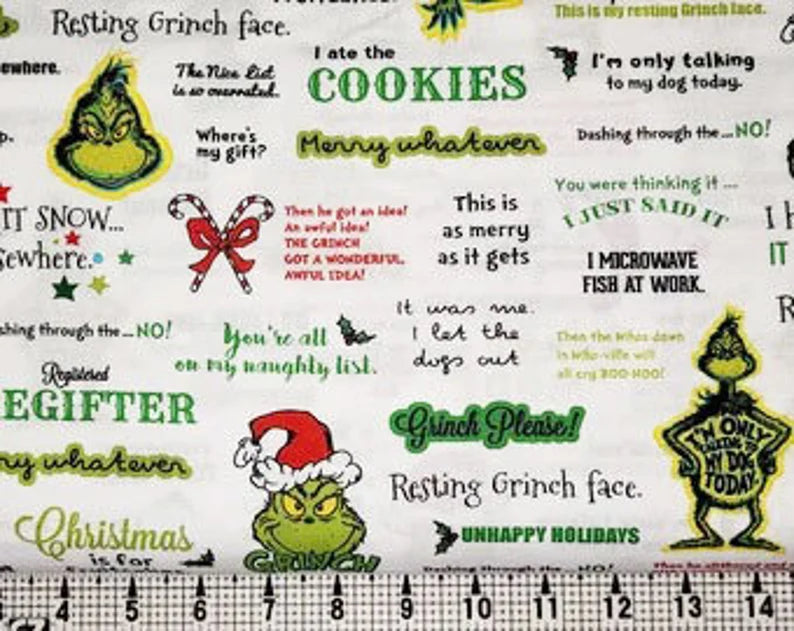 Resting Grinch face.
This is my resting Grinch face.
ewhere.
The Nice List
is so overrated.
I ate the
COOKIES
I'm only talking
to my dog today.
Where's
my gift?
Merry whatever
Dashing through the...NO!
p.
IT SNOW...
sewhere.
Then he got an idea!
An awful idea!
THE GRINCH
GOT A WONDERFUL,
AWFUL IDEA!
This is
as merry
as it gets
You were thinking it ...
I JUST SAID IT
I MICROWAVE
FISH AT WORK.
I h
IT
R
shing through the...NO!
You're all
on my naughty list.
It was me.
I let the
dogs out
Then the Whos down
in Who-ville will
all cry BOO-HOO!
Registered
EGIFTER
ry whatever
Grinch Please!
I'M ONLY
TALKING TO
MY DOG
TODAY
Resting Grinch face.
Christmas
is for
GRINCH
UNHAPPY HOLIDAYS
Dashing through the...NO!
4 5 6 7 8 9 10 11 12 13 14